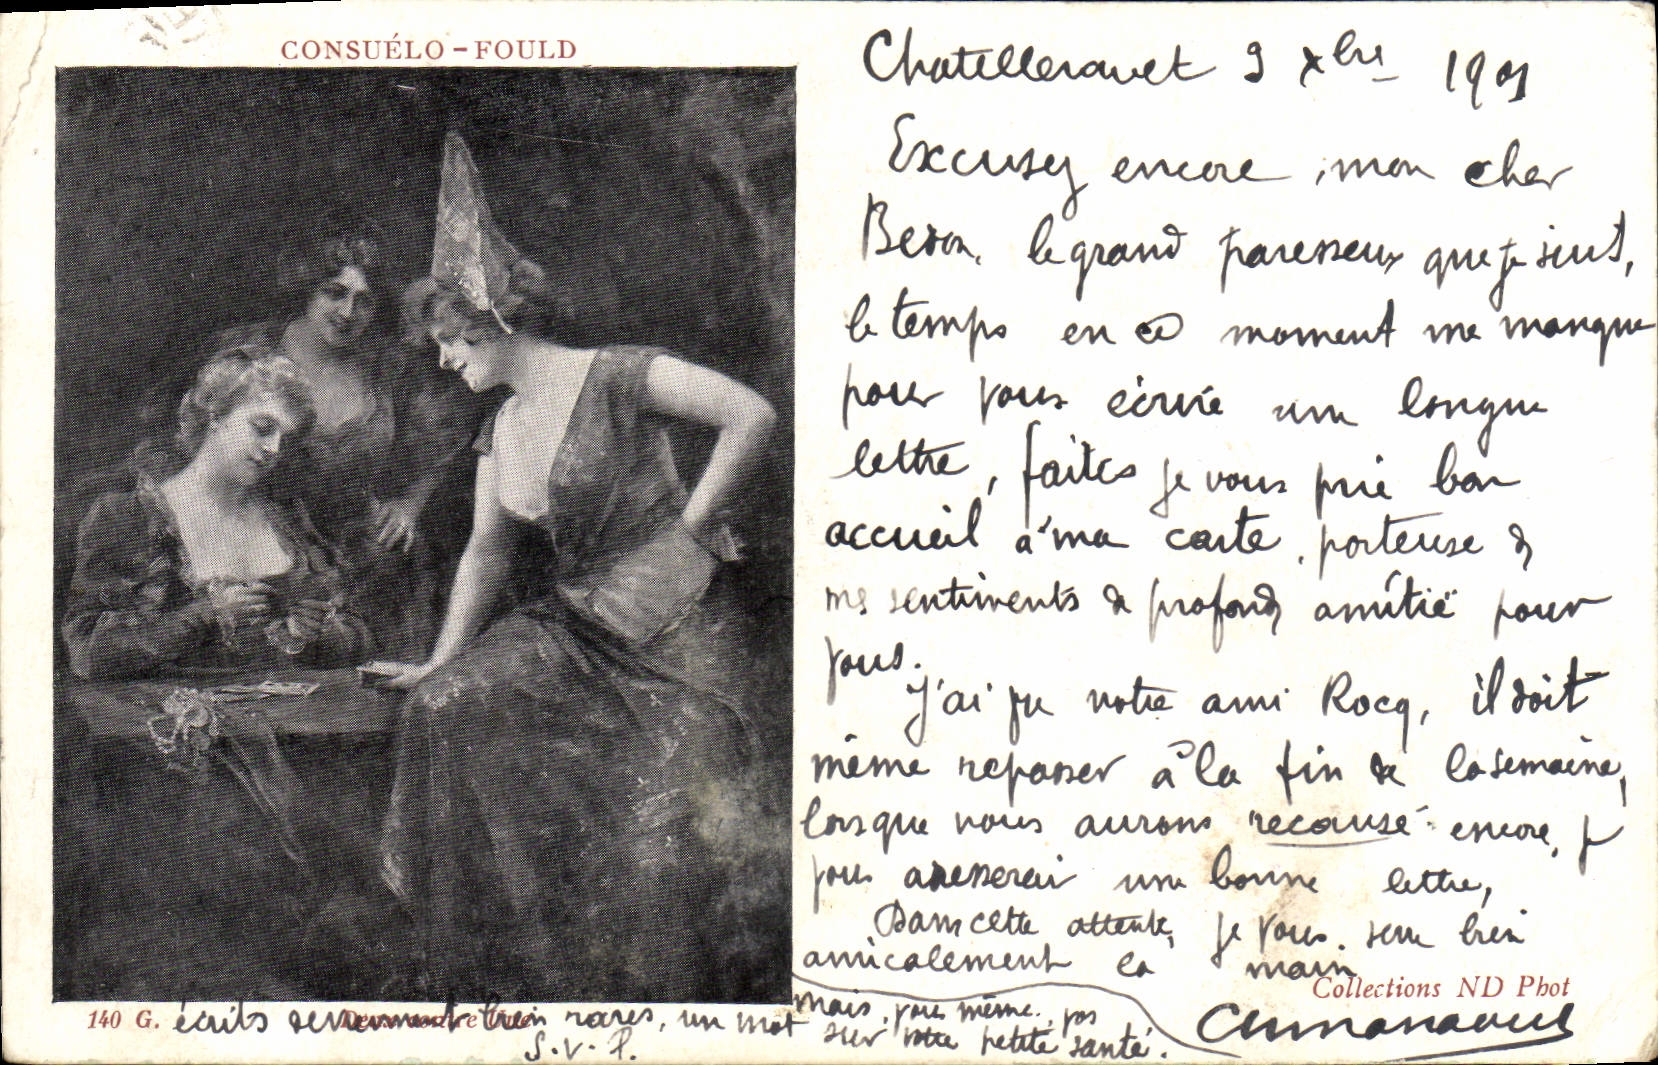 CONSUÉLO - FOULD
Chatellerault 9 Xbre 1901
Excusez encore, mon cher
le grand paresseux que je suis,
le temps en ce moment me manque
pour vous écrire une longue
lettre, faites je vous prie bon
accueil à ma carte, porteuse de
mes sentiments de profonde amitié pour
vous.
J'ai vu votre ami Rocq, il doit
même repasser à la fin de la semaine,
lorsque nous aurons recausé encore, je
vous adresserai une bonne lettre,
Dans cette attente, je vous serre bien
amicalement la main
Collections ND Phot
mais, vous même, vos
140 G. écrits deviennent bien rares, un mot
sur votre petite santé.
S.V.P.